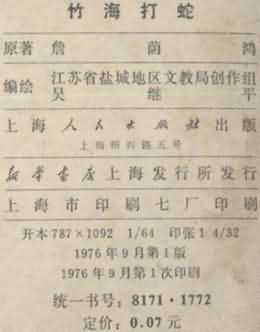 竹海打蛇
原著 詹荫鸿
编绘 江苏省盐城地区文教局创作组
吴继平
上海人民出版社出版
上海绍兴路五号
新华书店上海发行所发行
上海市印刷七厂印刷
开本787×1092 1/64 印张1 4/32
1976年9月第1版
1976年9月第1次印刷
统一书号：8171·1772
定价：0.07元